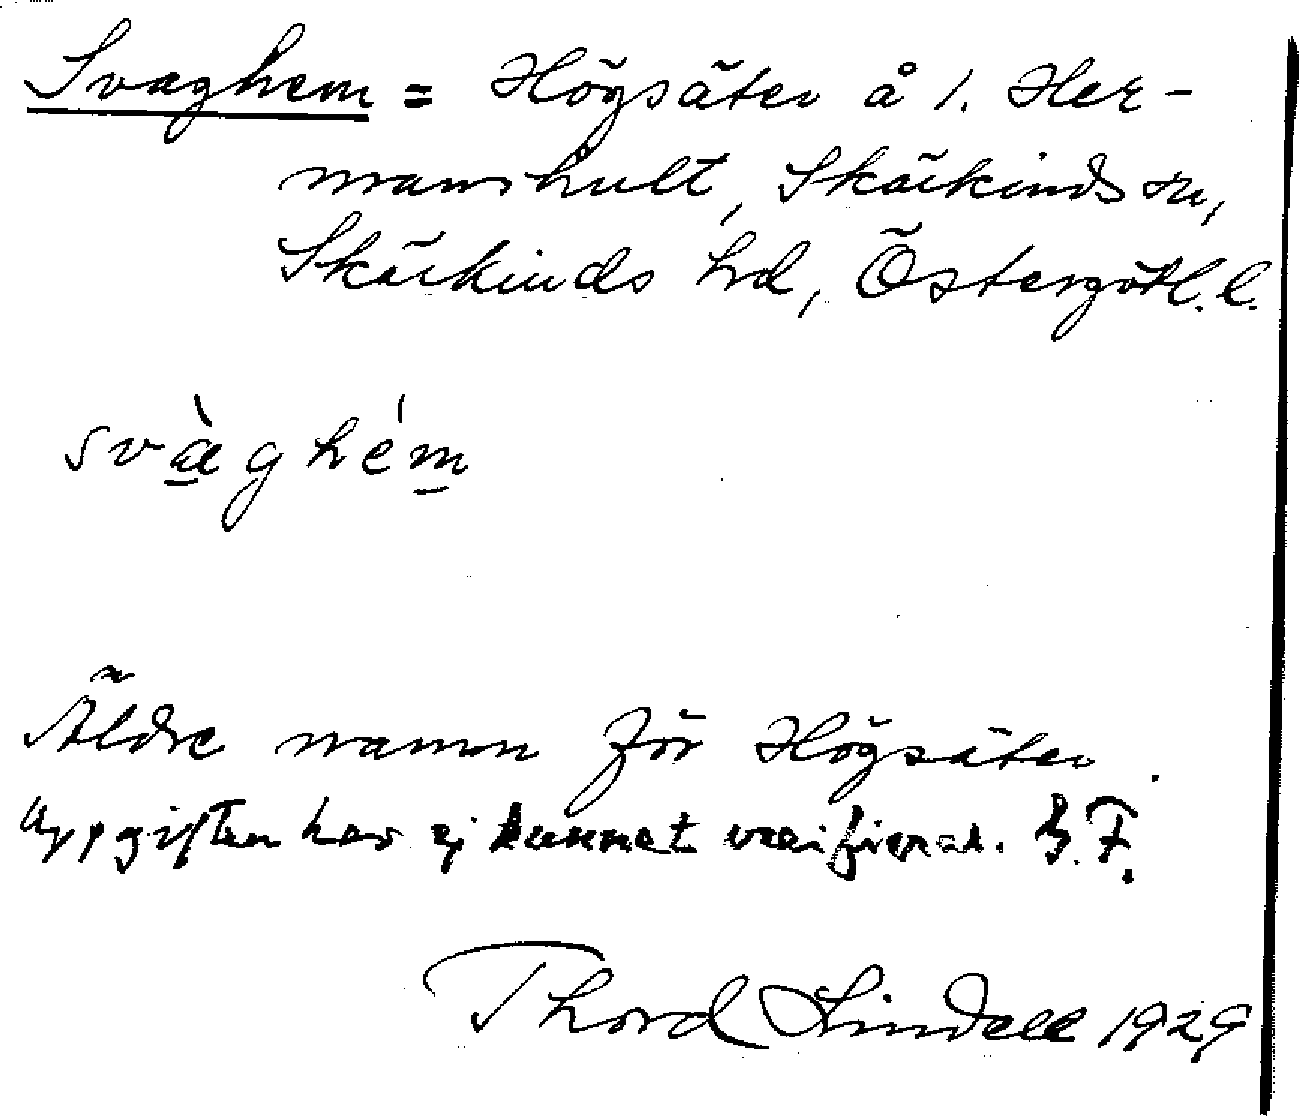 Svaghem = Högsäter å 1. Her-
manshult, Skärkinds sn,
Skärkinds hd, Östergötl. l.
svàghém
Äldre namn för Högsäter.
Uppgiften har ej kunnat verifieras. B.F.
Thord Lindell 1929